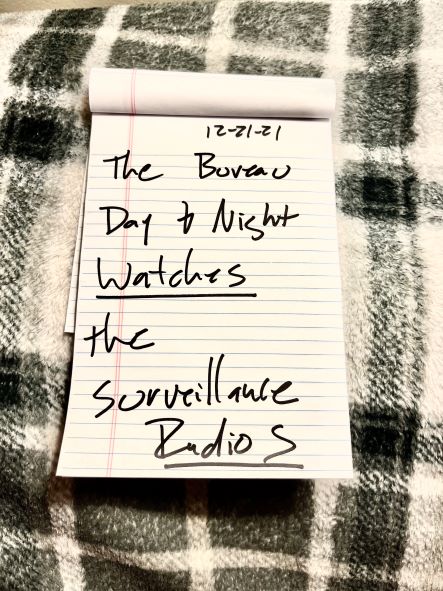 12-21-21
The Bureau
Day & Night
Watches
the
surveillance
Radio S